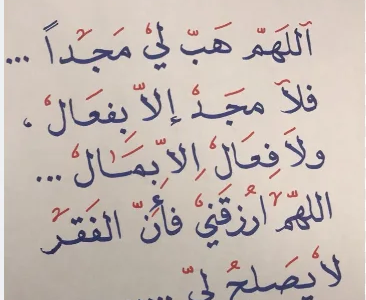 اللهمّ هَبّ ليْ مَجْداً ...
فلاَ مجَدْ إلاّ بِفعَالْ ،
ولاَ فِعَالْ اِلاّ بِمَالْ ...
اللهّمّ ارُزقَنيْ فأنّ الفَقرْ
لاَ يْصَلحُ ليّ ....